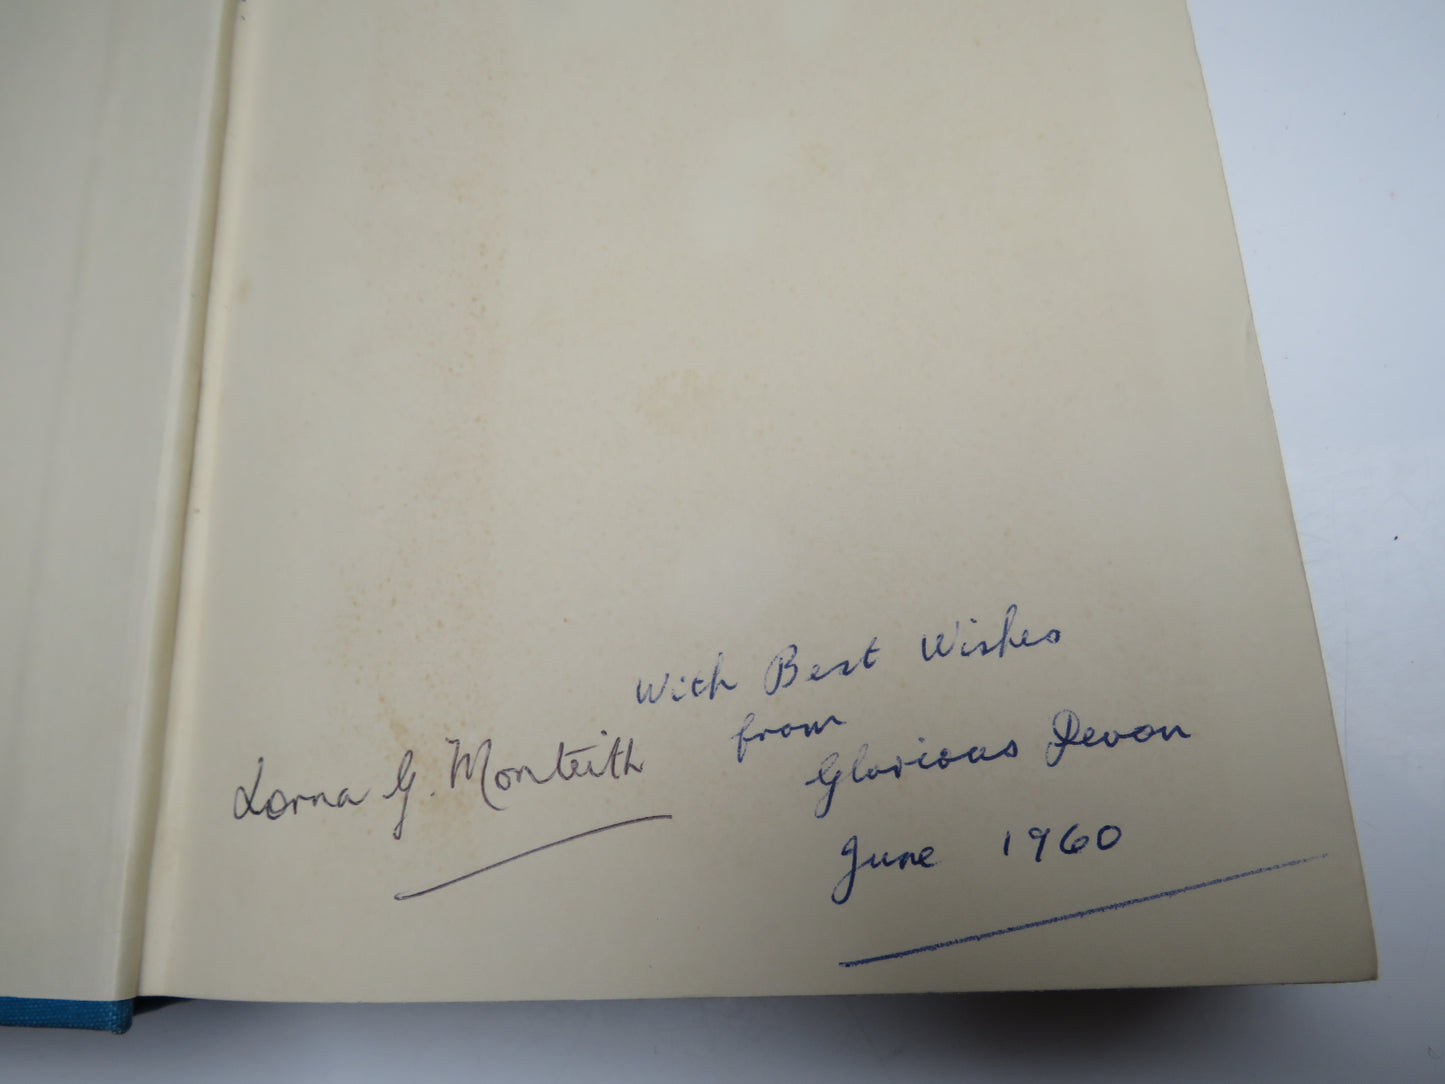 With Best Wishes
from
Glorious Devon
June 1960
Lorna G. Monteith